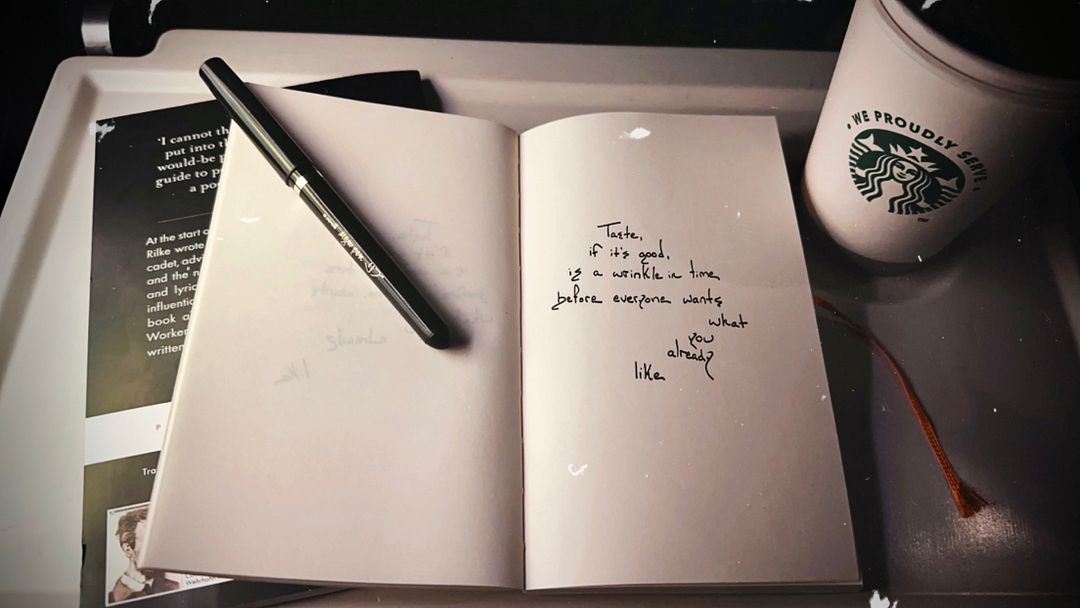 'I cannot th
put into th
would-be p
guide to p
a po
At the start o
Rilke wrote
cadet, advi
and the 'n
and lyric
influentia
book a
Worker
written
P
Tra
Taste,
if it's good,
is a wrinkle in time
before everyone wants
what
you
already
like
WE PROUDLY SERVE